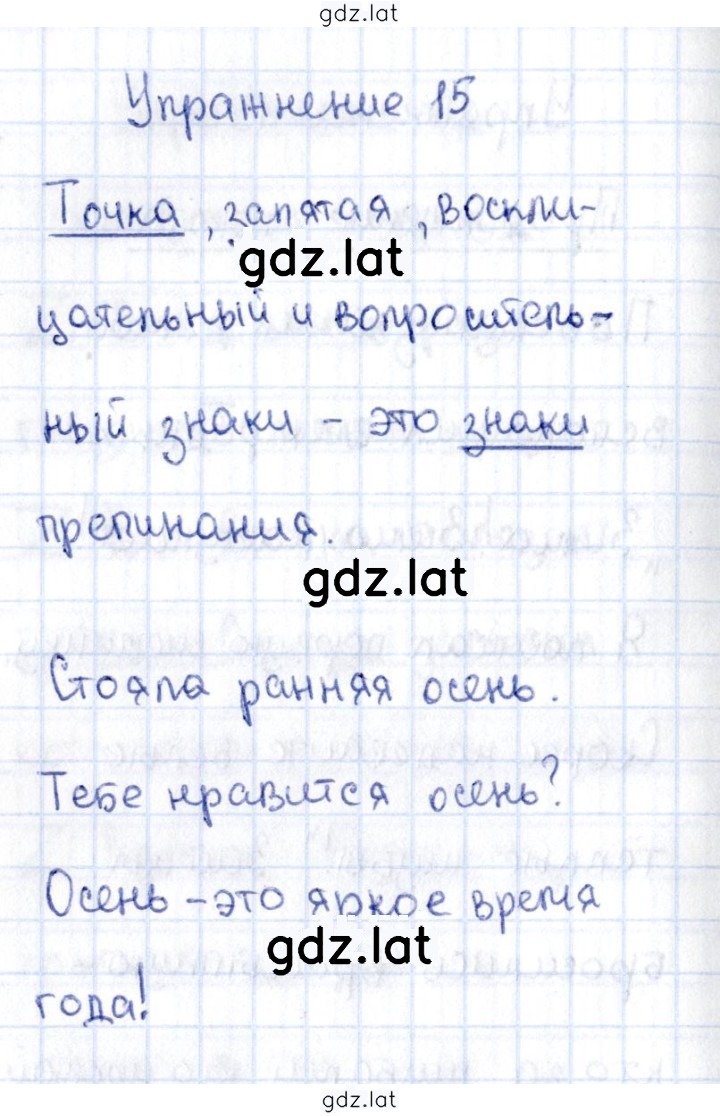 gdz.lat
Упражнение 15
Точка, запятая, воскли-
gdz.lat
цательный и вопроситель-
ный знаки – это знаки
препинания.
gdz.lat
Стояла ранняя осень.
Тебе нравится осень?
Осень – это яркое время
gdz.lat
года!
gdz.lat